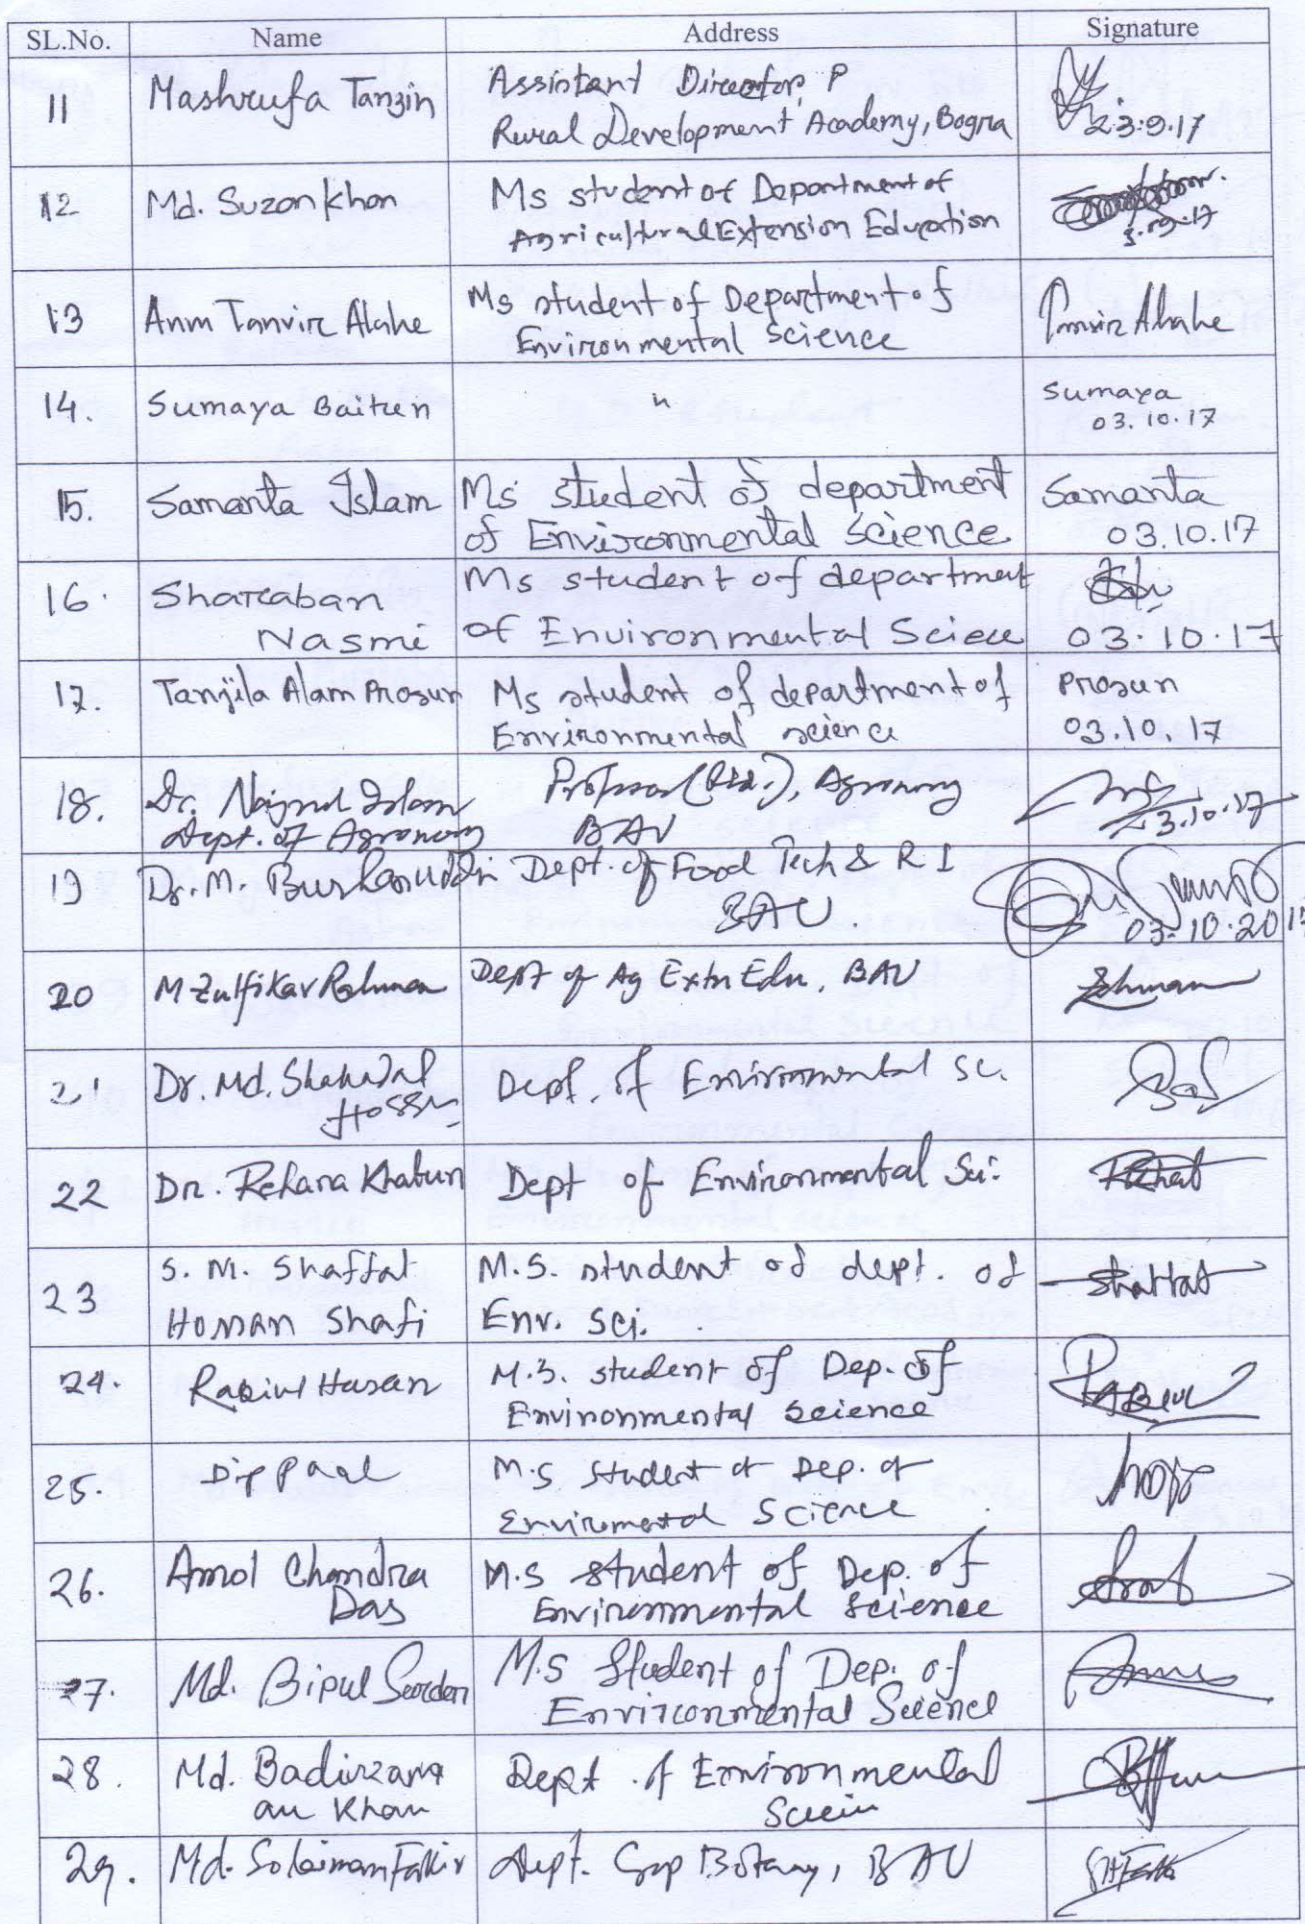 SL.No. Name Address Signature
11 Mashrufa Tanzin Assistant Director, P
Rural Development Academy, Bogra
23.9.17
12 Md. Suzon Khan Ms student of Department of
Agricultural Extension Education
3.10.17
13 Anm Tanvir Alahe Ms student of Department of
Environmental Science
Tanvir Alahe
14. Sumaya Baitun " Sumaya
03.10.17
15. Samanta Islam Ms student of department
of Environmental Science
Samanta
03.10.17
16. Sharaban
Nasmi
Ms student of department
of Environmental Sciece
03.10.17
17. Tanjila Alam Prosun Ms student of department of
Environmental science
Prosun
03.10.17
18. Dr. Nazrul Islam
Dept. of Agronomy
Professor (Rtd.), Agronomy
BAU
3.10.17
19 Dr. M. Burhanuddin Dept. of Food Tech & R I
BAU.
03.10.2017
20 M Zulfikar Rahman Dept of Ag Extn Edu, BAU Rahman
21 Dr. Md. Shahadat
Hossn
Dept. of Environmental Sc.
22 Dr. Rehana Khatun Dept of Environmental Sci.
23 S. M. Shaffat
Hossan Shafi
M.S. student of dept. of
Env. Sci.
Shaffat
24. Rabiul Hasan M.S. student of Dep. of
Environmental Science
Rabiul
25. Dip Paul M.S Student of Dep. of
Enviromental Science
26. Amol Chandra
Das
M.S student of Dep. of
Environmental Science
27. Md. Bipul Sarder M.S Student of Dep. of
Environmental Science
28. Md. Badiuzzam
an Khan
Dept. of Environmental
Scien
29. Md. Solaiman Fakir Dept. Crop Botany, BAU